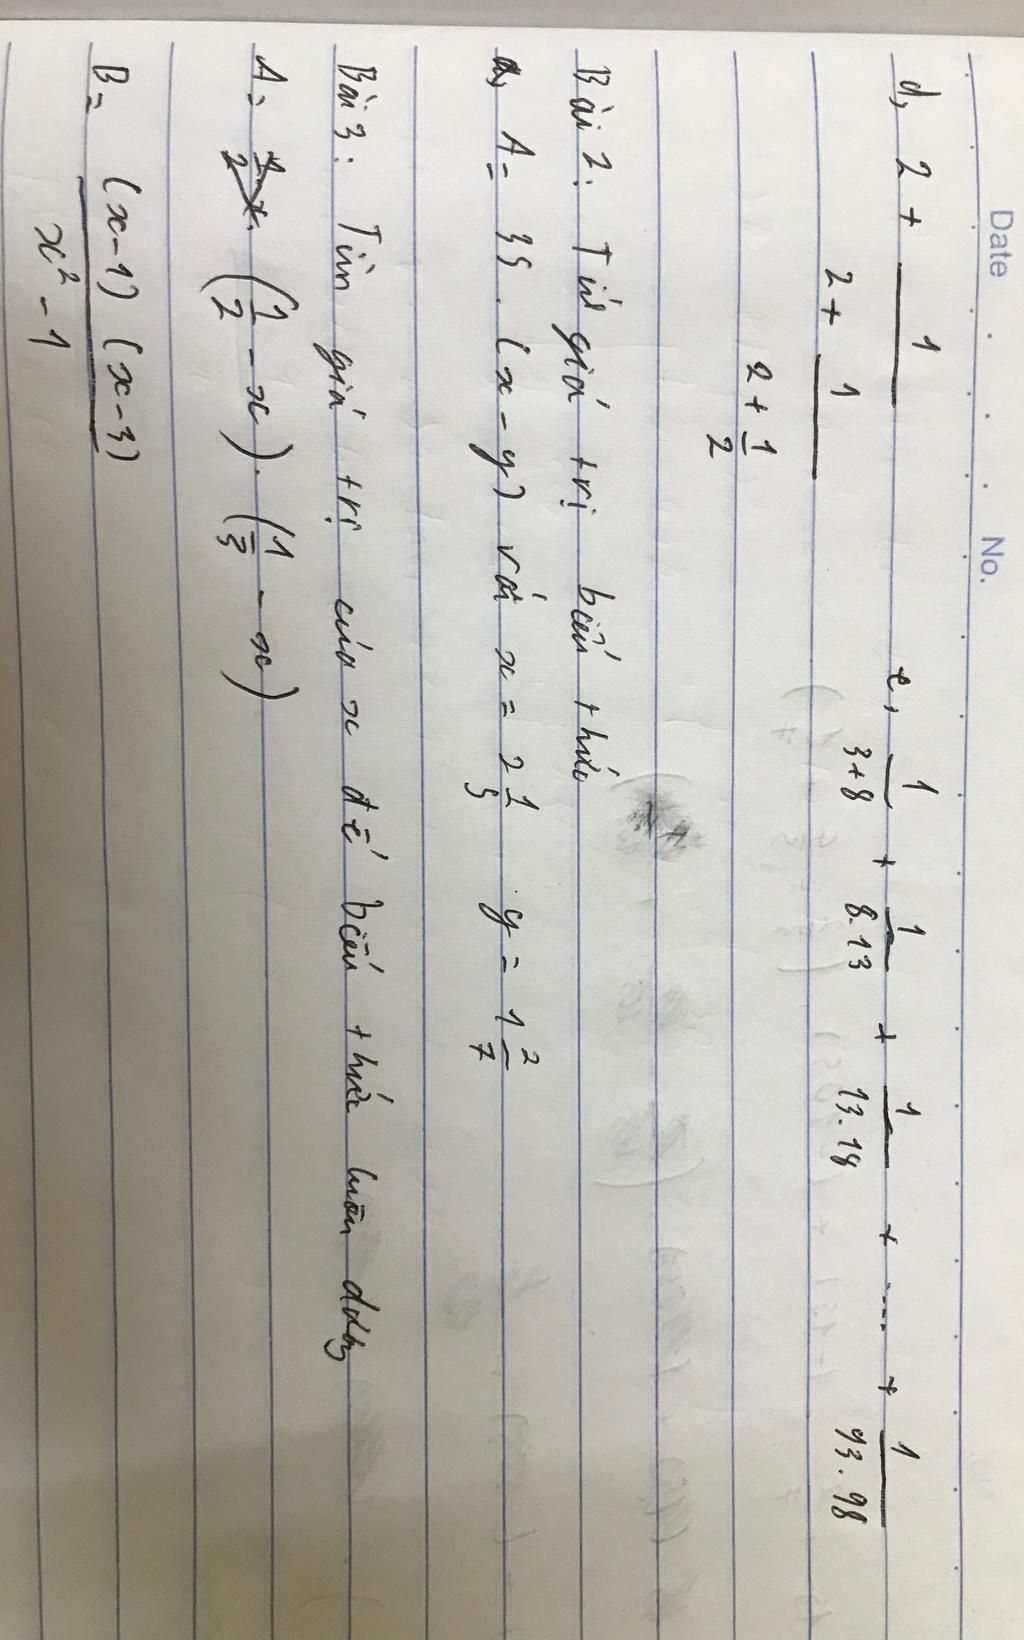 Date No.
d, 2 + 1 / (2 + 1 / (2 + 1/2)) e, 1/(3+8) + 1/(8.13) + 1/(13.18) + .... + 1/(93.98)
Bài 2: Tính giá trị biểu thức
a, A = 35 . (x - y) với x = 2 1/5 y = 1 2/7
Bài 3: Tìm giá trị của x để biểu thức luôn dương
A = (1/2 - x) . (1/3 - x)
B = (x-1) (x-3) / (x² - 1)